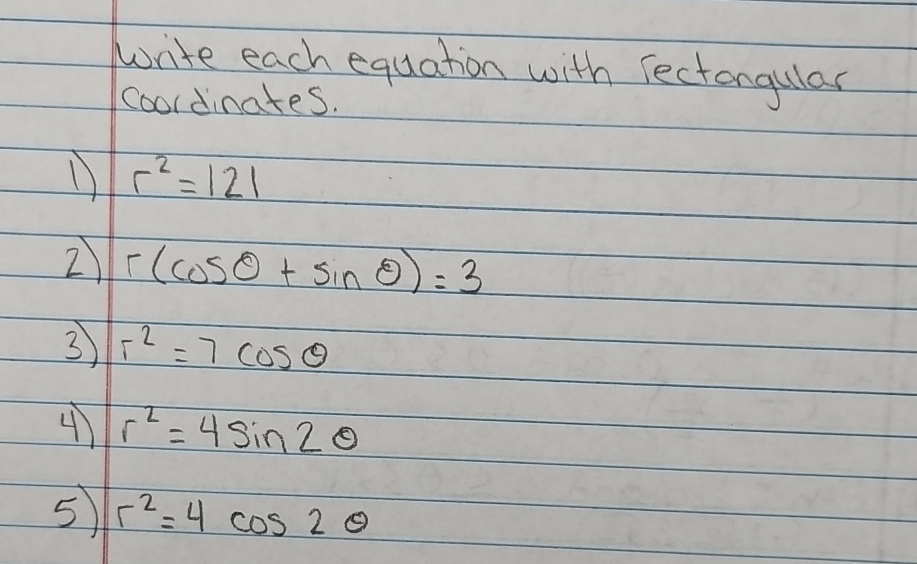 Write each equation with rectangular
coordinates.
1) r² = 121
2) r(cosθ + sin θ) = 3
3) r² = 7 cos θ
4) r² = 4 sin 2 θ
5) r² = 4 cos 2 θ